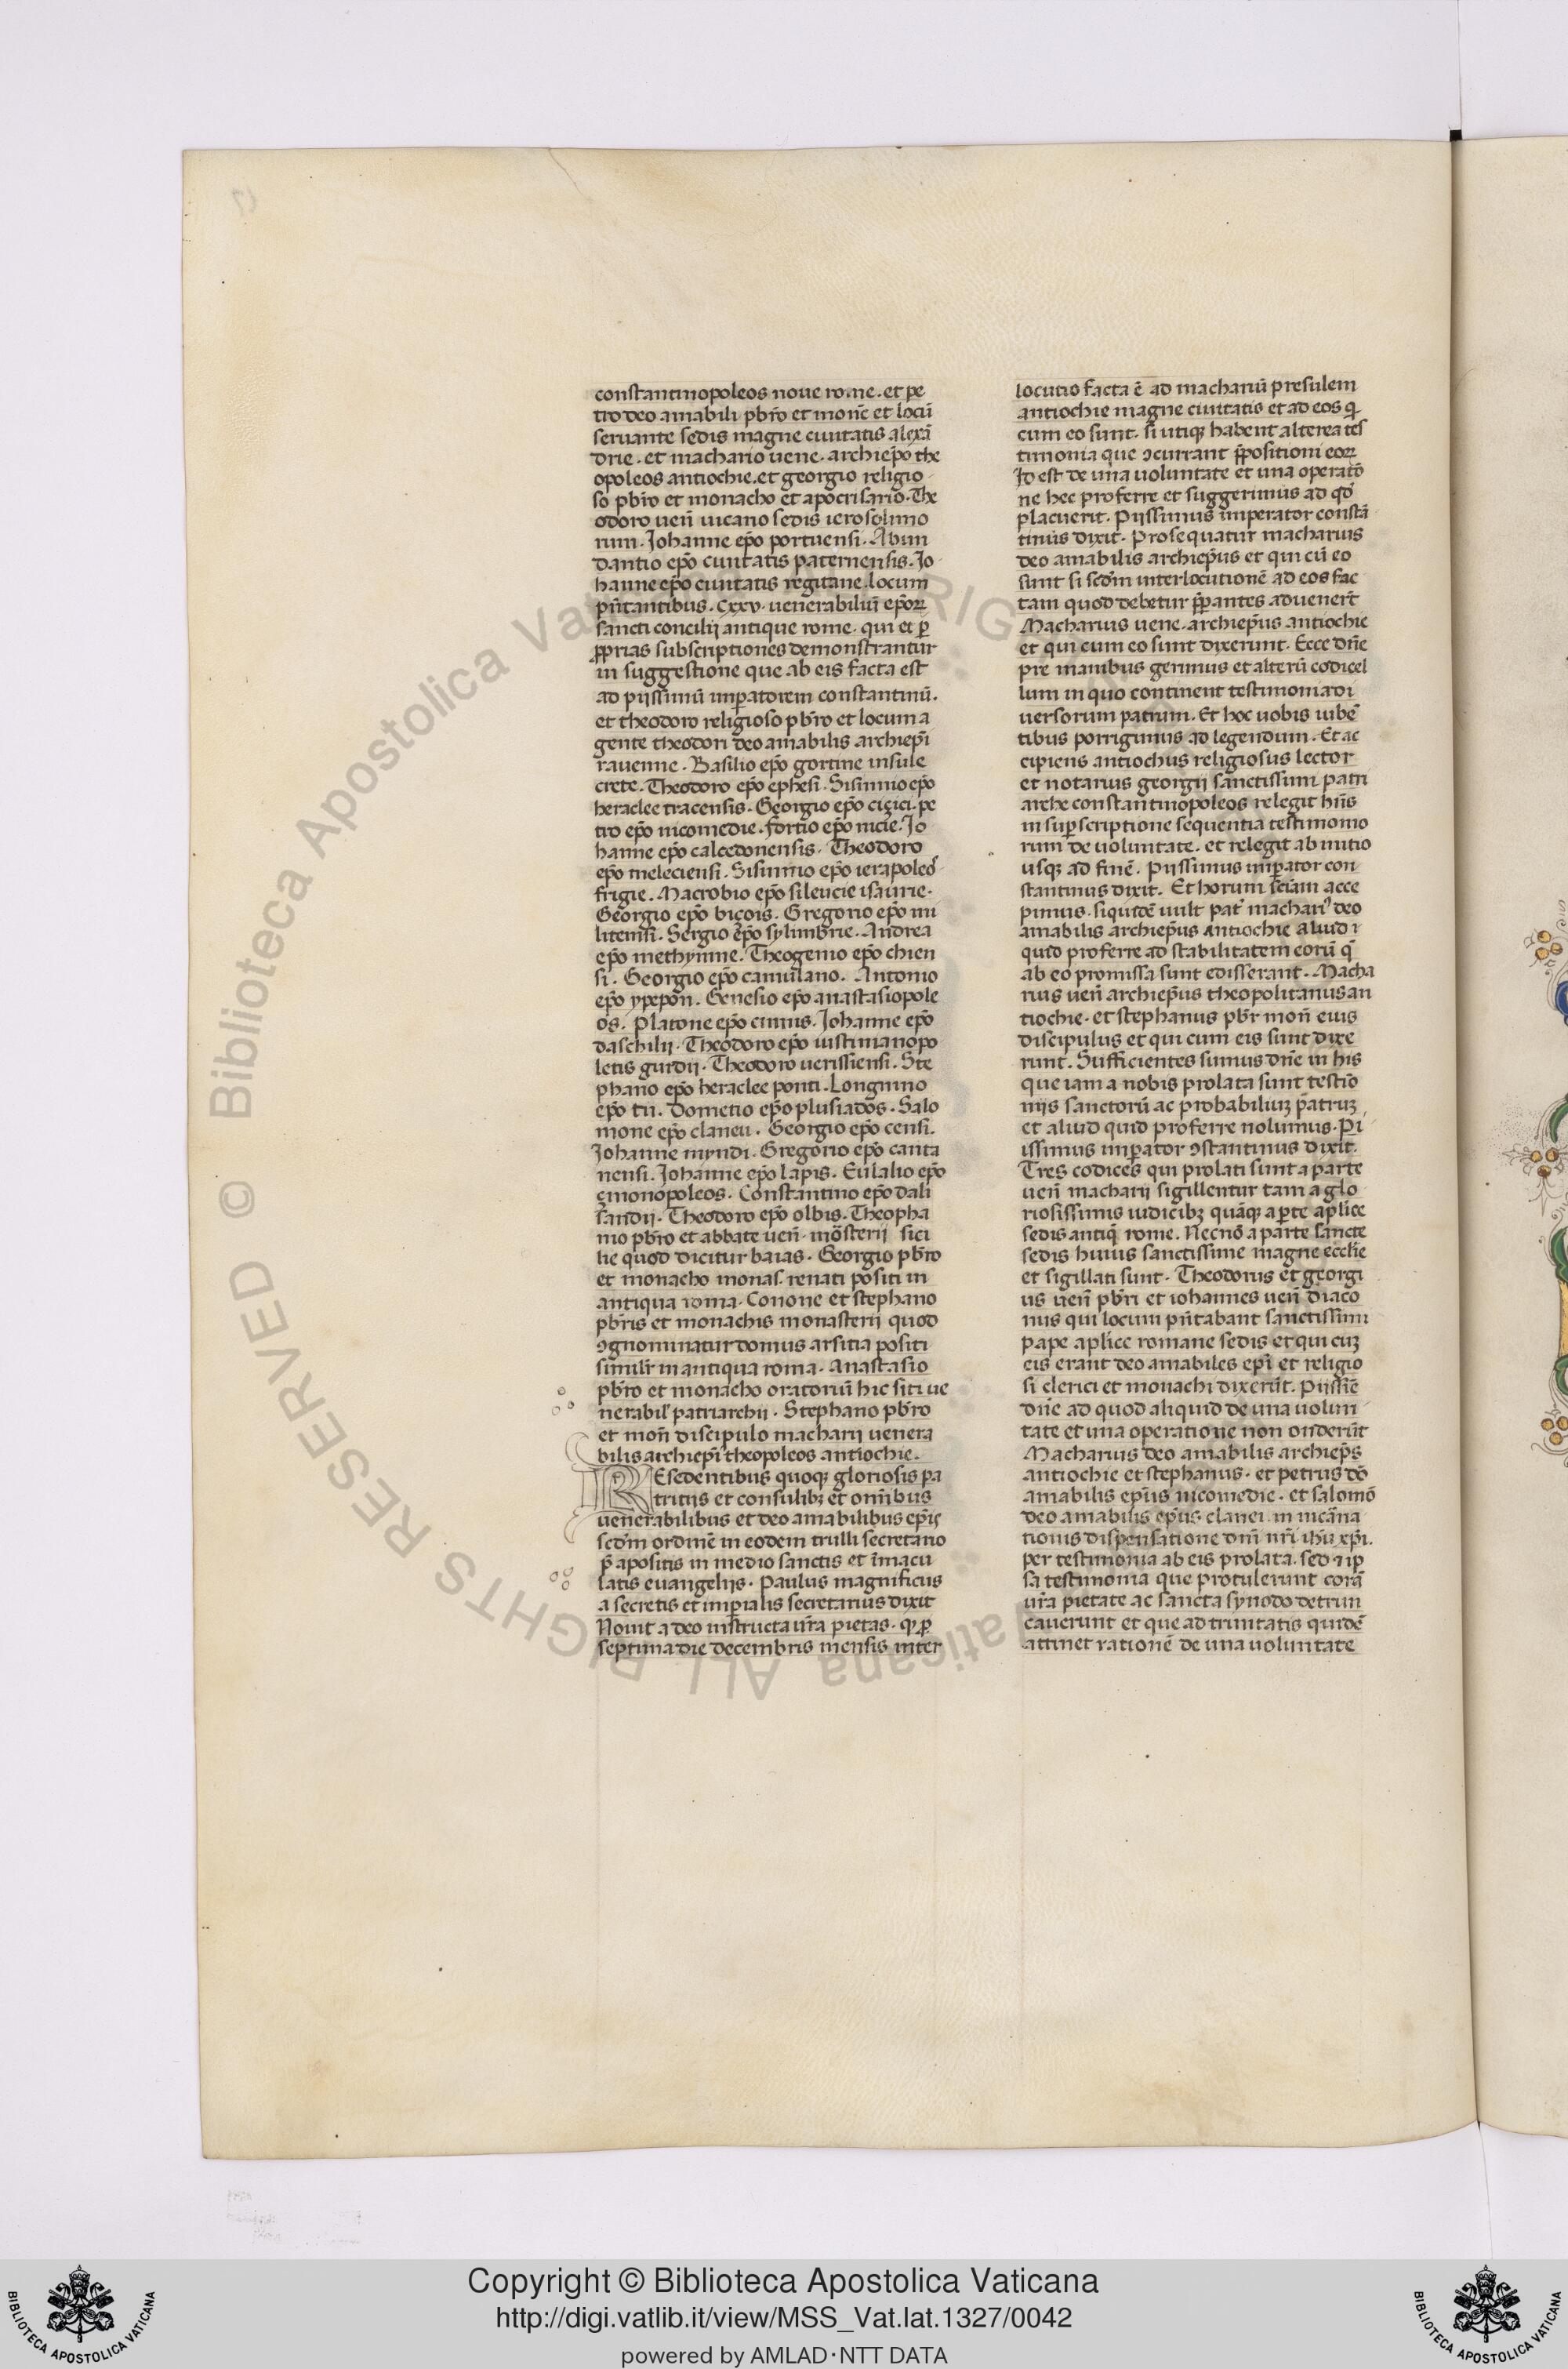 constantinopoleos noue rome. et pe
tro deo amabili pbr̄o et monc̄ et locū
seruante sedis magne ciuitatis alexā
drie. et machario uene. archiep̄o the
opoleos antiochie. et georgio religio
so pbr̄o et monacho et apocrisario. The
odoro uen̄ uicario sedis ierosolimo
rum. Johanne ep̄o portuensi. Abun
dantio ep̄o ciuitatis paternensis. Jo
hanne ep̄o ciuitatis regitane. locum
pn̄tantibus. cxxv. uenerabiliū ep̄oꝝ
sancti concilij antique rome. qui et ꝑ
ꝓprias subscriptiones demonstrantur
in suggestione que ab eis facta est
ad pijssimū imꝑatorem constantinū.
et theodoro religioso pbr̄o et locum a
gente theodori deo amabilis archiep̄i
rauenne. Basilio ep̄o gortine insule
crete. Theodoro ep̄o ephesi. Sisinnio ep̄o
heraclee tracensis. Georgio ep̄o ciçici. pe
tro ep̄o nicomedie. fortio ep̄o nicie. Jo
hanne ep̄o calcedonensis. Theodoro
ep̄o meleciensi. Sisinnio ep̄o ierapoleos
frigie. Macrobio ep̄o sileucie isaurie.
Georgio ep̄o biçois. Gregorio ep̄o mi
litensi. Sergio ep̄o sylimbrie. Andrea
ep̄o methymne. Theogenio ep̄o chien
si. Georgio ep̄o camulano. Antonio
ep̄o ypepon. Genesio ep̄o anastasiopole
os. Platone ep̄o cinnis. Johanne ep̄o
daschilij. Theodoro ep̄o iustinianopo
letis gurdij. Theodoro uerissiensi. Ste
phano ep̄o heraclee ponti. Longinno
ep̄o tii. Dometio ep̄o plusiados. Salo
mone ep̄o claneu. Georgio ep̄o censi.
Johanne myndi. Gregorio ep̄o canta
nensi. Johanne ep̄o lapis. Eulalio ep̄o
çinonopoleos. Constantino ep̄o dali
sandij. Theodoro ep̄o olbis. Theopha
nio pbr̄o et abbate uen̄ mōsterij sici
lie quod dicitur baias. Georgio pbr̄o
et monacho monas. renati positi in
antiqua roma. Conone et stephano
pbr̄is et monachis monasterij quod
ꝯgnominatur domus arsitia positi
similr̄ in antiqua roma. anastasio
pbr̄o et monacho oratoriū hic siti ue
nerabil' patriarchij. Stephano pbr̄o
et mon̄ discipulo macharij uenera
bilis archiep̄i theopoleos antiochie.
REsedentibus quoqꝫ gloriosis pa
tritijs et consulibꝫ et omībus
uenerabilibus et deo amabilibus ep̄is
scdm̄ ordinē in eodem trulli secretario
p̄ apositis in medio sanctis et īmacu
latis euangelijs. Paulus magnificus
a secretis et imꝑialis secretarius dixit
Nouit a deo instructa ur̄a pietas. qꝫ ꝑ
septima die decembris mensis inter
locutio facta ē ad machariū presulem
antiochie magne ciuitatis et ad eos q̄
cum eo sunt. si utiqꝫ habent alterea tes
timonia que ꝯcurrant ꝓpositioni eoꝝ
Id est de una uoluntate et una operatō
ne hec proferre et suggerimus ad qd'
placuerit. Pijssimus imperator constā
tinus dixit. Prosequatur macharius
deo amabilis archiep̄us et qui cū eo
sunt si scdm̄ interlocutionē ad eos fac
tam quod debetur p̄ꝑantes aduener̄t
Macharius uene. archiep̄us antiochie
et qui cum eo sunt dixerunt. Ecce dn̄e
pre manibus gerimus et alterū codicel
lum in quo continent testimonia di
uersorum patrum. Et hoc uobis iubē
tibus porrigimus ad legendum. Et ac
cipiens antiochus religiosus lector
et notarius georgij sanctissimi patri
arche constantinopoleos relegit hn̄s
in suꝑscriptione sequentia testimonio
rum de uoluntate. et relegit ab initio
usqꝫ ad finē. Pijssimus imꝑator con
stantinus dixit. Et horum sciam̄ acce
pimus. siquidē uult pat' machari' deo
amabilis archiep̄us antiochie aliud
quid proferre ad stabilitatem eorū q̄
ab eo promissa sunt edisserant. Macha
rius uen̄ archiep̄us theopolitanus an
tiochie. et stephanus pbr̄ mon̄ eius
discipulus et qui cum eis sunt dixe
runt. Sufficientes sumus dn̄e in his
que iam a nobis prolata sunt testio
niis sanctorū ac probabiliuꝫ patruꝫ
et aliud quid proferre nolumus. Pi
issimus imꝑator ꝯstantinus dixit.
Tres codices qui prolati sunt a parte
uen̄ macharij sigillentur tam a glo
riosissimis iudicibꝫ quāqꝫ a ꝑte aplice
sedis antiq̄ rome. Necnō a parte sancte
sedis huius sanctissime magne eccl̄ie
et sigillati sunt. Theodorus et georgi
us uen̄ pbr̄i et iohannes uen̄ diaco
nus qui locum pn̄tabant sanctissimi
pape aplice romane sedis et qui cuꝫ
eis erant deo amabiles ep̄i et religio
si clerici et monachi dixerūt. Pijssīe
dn̄e ad quod aliquid de una uolun
tate et una operatione non onderūt
Macharius deo amabilis archiep̄s
antiochie et stephanus. et petrus dō
amabilis ep̄us nicomedie. et salomō
deo amabilis ep̄us clanei. in incarna
tionis dispensatione dn̄i nr̄i ihū xp̄i.
per testimonia ab eis prolata. sed ⁊ ip
sa testimonia que protulerunt corā
ur̄a pietate ac sancta synodo detrun
cauerunt et que ad trinitatis quidē
attinet rationē de una uoluntate
Copyright © Biblioteca Apostolica Vaticana
http://digi.vatlib.it/view/MSS_Vat.lat.1327/0042
powered by AMLAD·NTT DATA
BIBLIOTECA APOSTOLICA VATICANA
BIBLIOTECA APOSTOLICA VATICANA
© Biblioteca Apostolica Vaticana ALL RIGHTS RESERVED